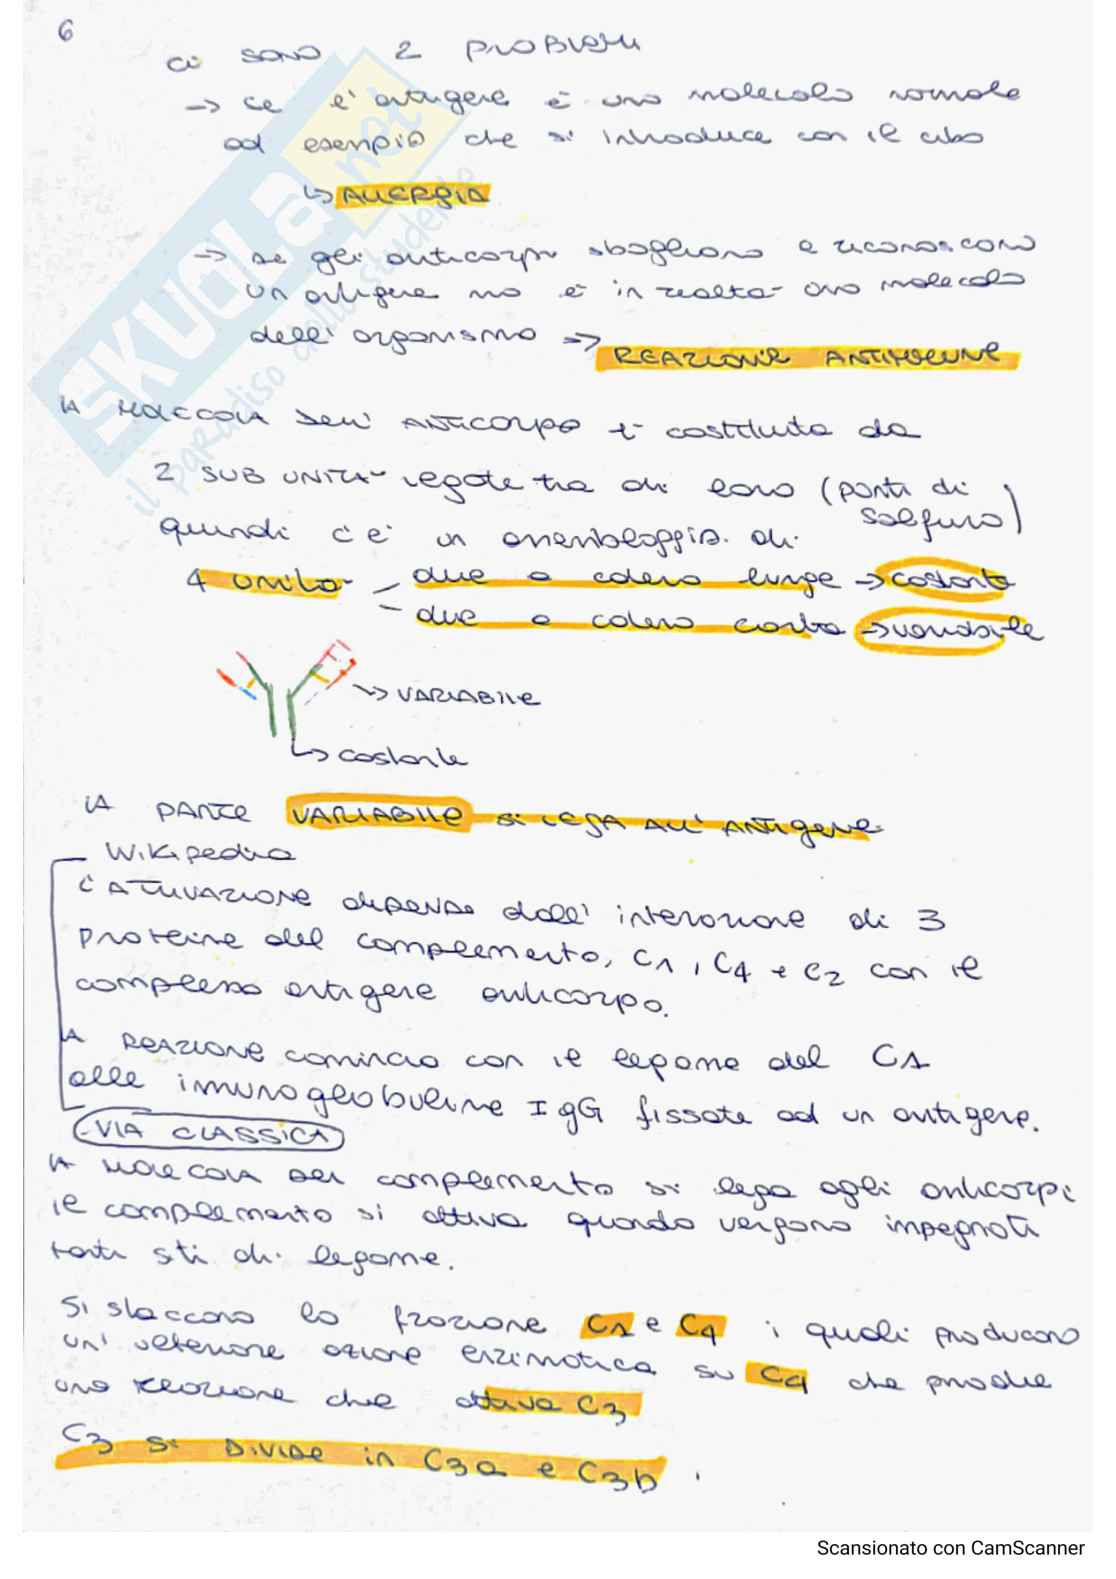 6
ci sono 2 problemi
→ se l'antigene è una molecola normale
ad esempio che si introduce con il cibo
↳ ALLERGIA
→ se gli anticorpi sbagliano e riconoscono
un antigene ma è in realtà una molecola
dell'organismo → REAZIONE ANTIMMUNE
LA MOLECOLA DELL'ANTICORPO è costituita da
2 SUB UNITA' legate tra di loro (ponti di
solfuro)
quindi c'è un assemblaggio di
4 unità due a catena lunga → costante
due a catena corta → variabile
→ VARIABILE
↳ costante
LA PARTE VARIABILE si LEGA ALL'ANTIGENE
Wikipedia
L'ATTIVAZIONE DIPENDE dall'interazione di 3
proteine del complemento, C1, C4 e C2 con il
complesso antigene anticorpo.
LA REAZIONE comincia con il legame del C1
alle immunoglobuline IgG fissate ad un antigene.
VIA CLASSICA
LA MOLECOLA DEL complemento si lega agli anticorpi
il complemento si attiva quando vengono impegnati
tanti siti di legame.
Si staccano la frazione C1 e C4 i quali producono
un'ulteriore azione enzimatica su C4 che produce
una reazione che attiva C3
C3 si DIVIDE in C3a e C3b.
SKUOLA.net
il paradiso dello studente
Scansionato con CamScanner